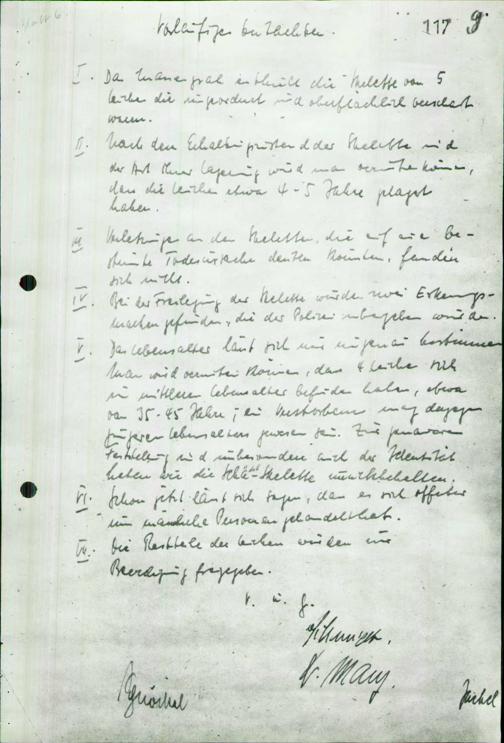 117 g
Vorläufiges Gutachten.
I. Das Massengrab enthielt die Skelette von 5
Leichen die ungeordnet und oberflächlich verscharrt
waren.
II. Nach dem Erhaltungszustand der Skelette und
der Art ihrer Lagerung wird man vermuten können,
dass die Leichen etwa 4-5 Jahre gelagert
haben.
III. Verletzungen an den Skeletten, die auf eine be-
stimmte Todesursache deuten könnten, fanden
sich nicht.
IV. Bei der Freilegung der Skelette wurden zwei Erkennungs-
marken gefunden, die der Polizei übergeben wurden.
V. Das Lebensalter lässt sich nur ungenau bestimmen
Man wird vermuten können, dass 4 Leichen sich
im mittleren Lebensalter befunden haben, etwa
von 35-45 Jahre; ein Verstorbener mag dagegen
jüngeren Lebensalters gewesen sein. Zur genaueren
Feststellung und insbesondere auch der Identität
haben wir die Skelette zurückbehalten.
VI. Schon jetzt lässt sich sagen, dass es sich offenbar
um männliche Personen gehandelt hat.
VII. Die Restteile der Leichen wurden zur
Beerdigung freigegeben.
v. u. g.